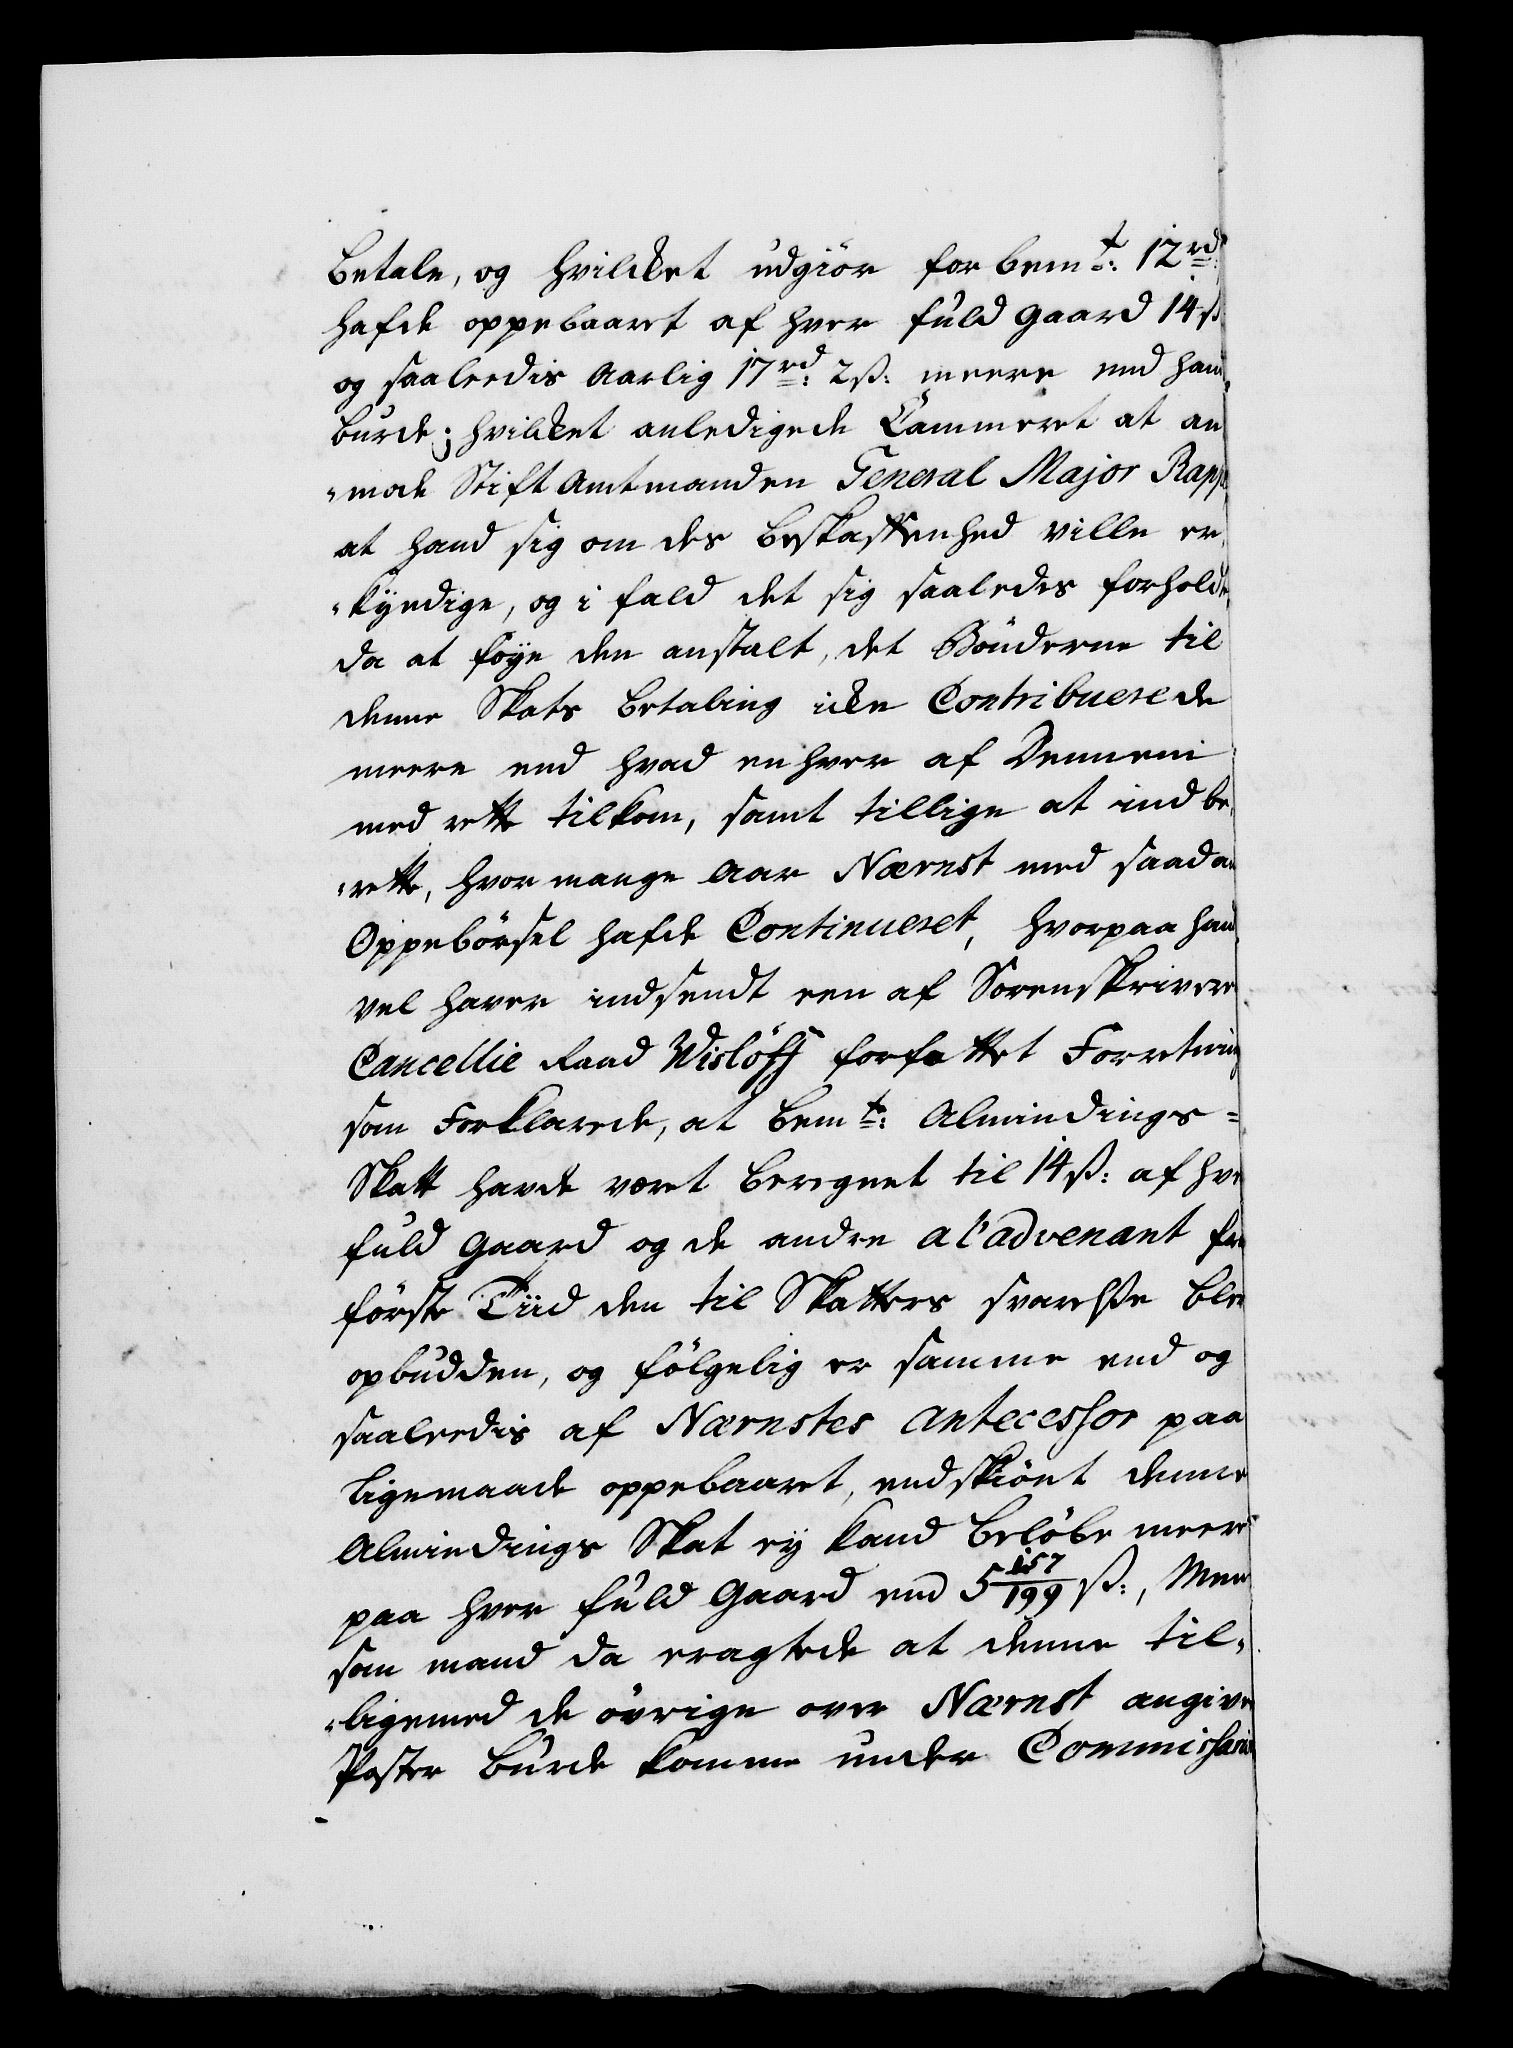 betale, og hvilcket udgiör forbemt: 12rd:
hafde oppebaaret af hver fuld Gaard 14ß
og saaleedis Aarlig 17rd: 2ß: meere end hand
burde; hvilcket anledigede Cammeret at an
"mode StiftAmtmanden General Major Rappe
at hand sig om des beskaffenhed ville er„
"kyndige, og i fald det sig saaledes forholdt,
da at föye den anstalt, det Bönderne til
denne Skats betaling icke Contribuerede
meere end hvad enhver af Dennem
med rette tilkom, samt tillige at indbe„
"rette, hvor mange Aar Nærnst med saadan
Oppebörsel hafde Continueret, hvorpaa hand
vel haver indsendt een af Sorenskriver
Cancellie Raad Wislöff forfattet Forretning
som Forklarede, at bemte: Almindings=
Skatt havde været beregnet til 14ß: af hver
fuld Gaard og de andre a l'advenant fra
förste Tiid den til Skatters svarelse blev
opbudden, og fölgelig er samme end og
saaleedis af Nærnstes Antecessor paa
ligemaade oppebaaret, endskiönt denne
Almindings Skat ey kand belöbe meere
paa hver fuld Gaard end 5 157/199 ß:, Men
som mand da eragtede at denne til„
"ligemed de övrige over Nærnst angivne
Poster burde komme under Commissarie